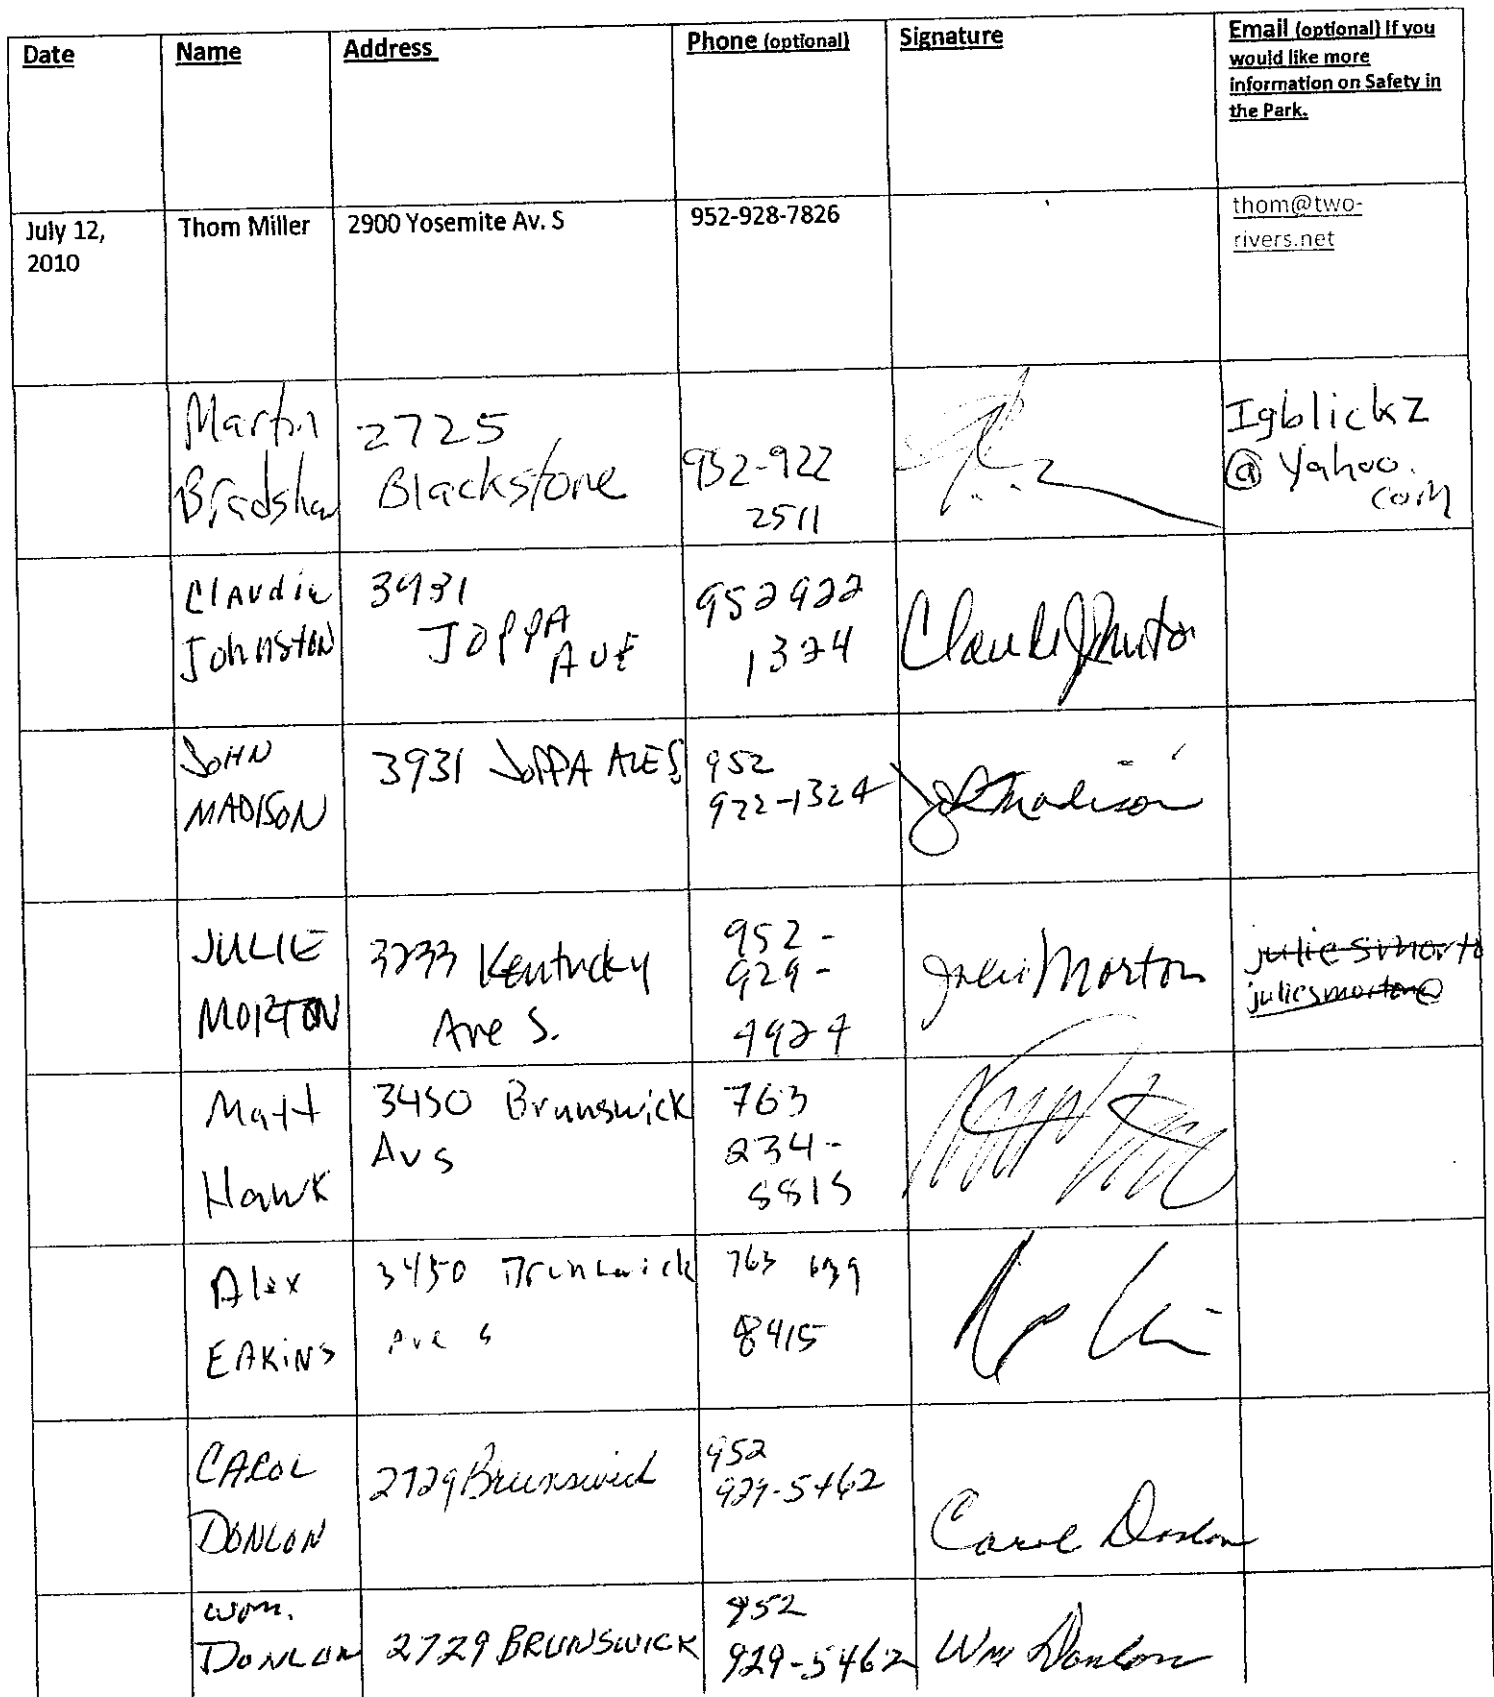 Date
Name
Address
Phone (optional)
Signature
Email (optional) If you
would like more
information on Safety in
the Park.
July 12,
2010
Thom Miller
2900 Yosemite Av. S
952-928-7826
thom@two-
rivers.net
Martin
Bradshaw
2725
Blackstone
952-922
2511
Igblickz
@ Yahoo.
com
Claudia
Johnston
3931
JOPPA
AVE
952 922
1324
JOHN
MADISON
3931 JOPPA AVE S
952
922-1324
John Madison
JULIE
MORTON
3233 Kentucky
Ave S.
952-
929-
4924
Julie Morton
juliesmorto
juliesmorton@
Matt
Hawk
3450 Brunswick
Av S
763
234-
5815
Alex
EAKINS
3450 Brunswick
Ave S
763 639
8415
CAROL
DONLON
2729 Brunswick
952
929-5462
Carol Donlon
Wm.
DONLON
2729 BRUNSWICK
952
929-5462
Wm Donlon